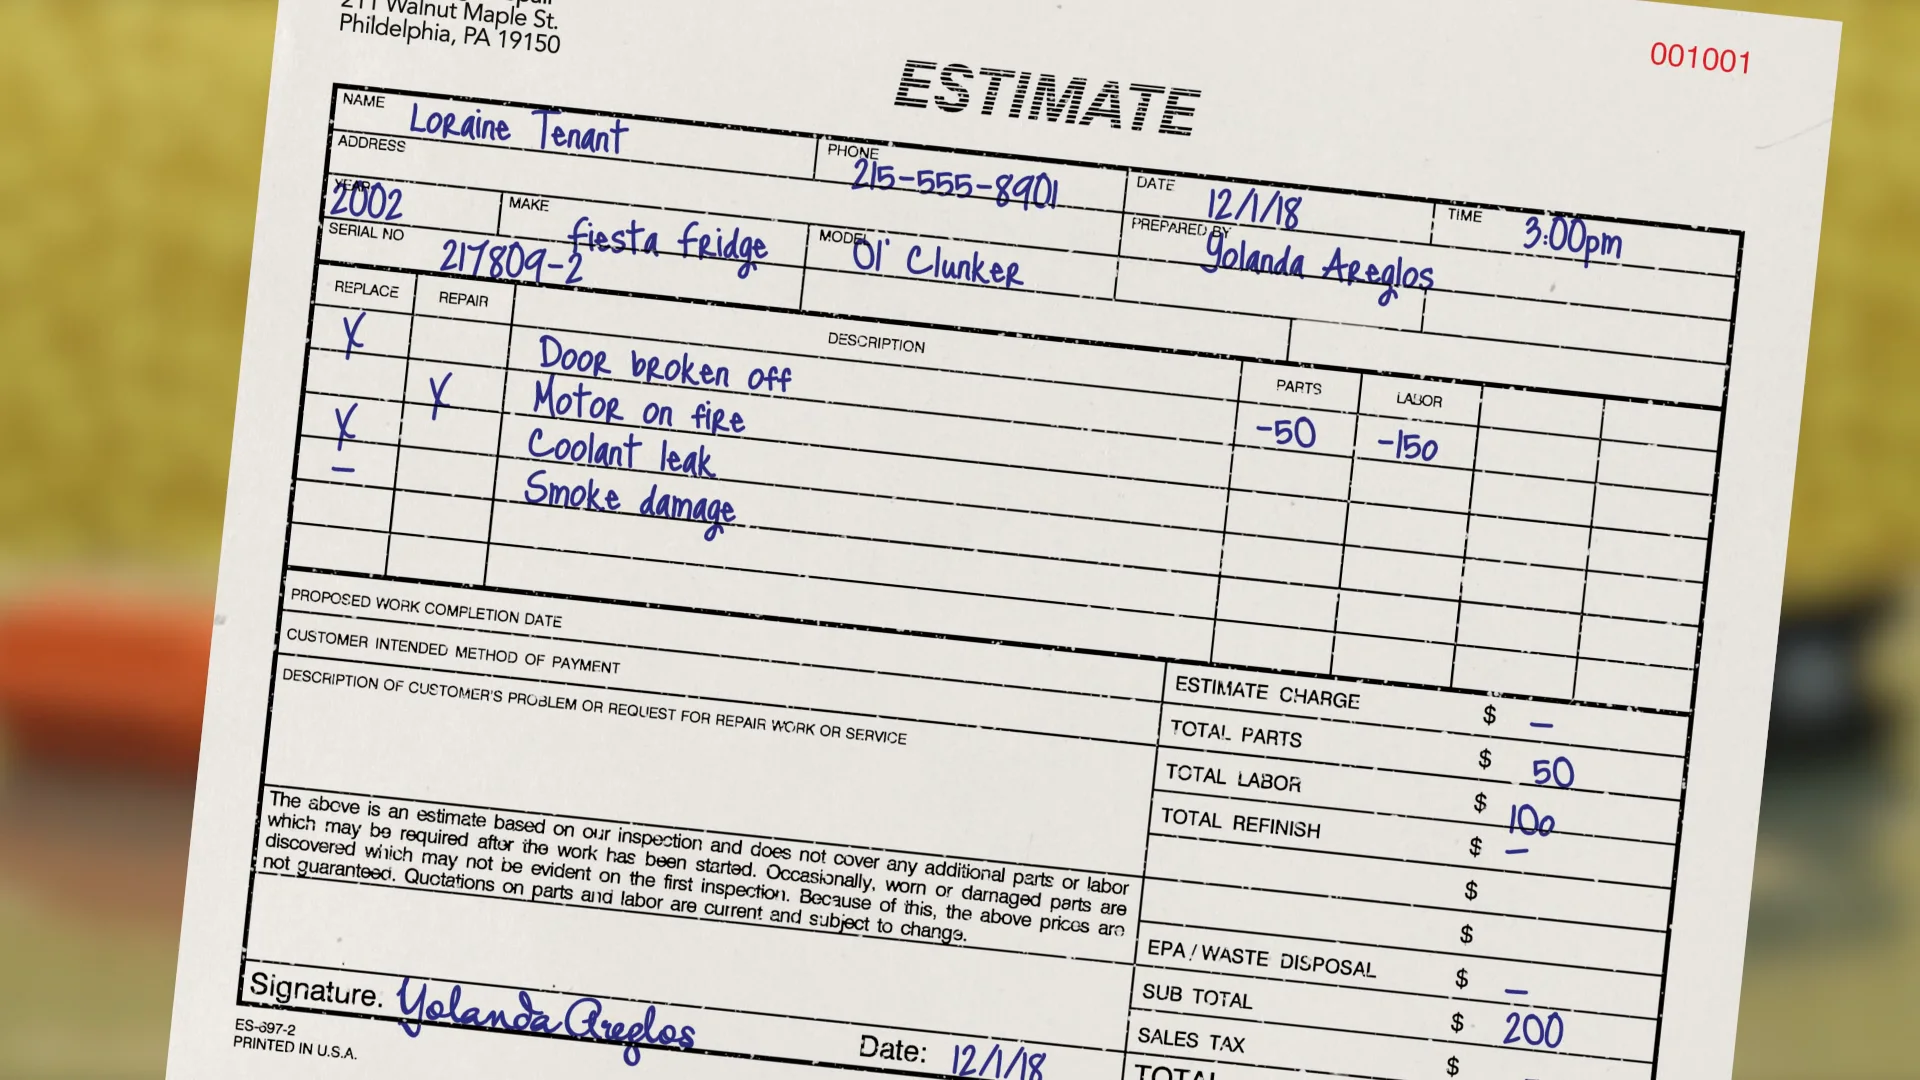 211 Walnut Maple St.
Phildelphia, PA 19150
001001
ESTIMATE
NAME Loraine Tenant
PHONE 215-555-8901
ADDRESS
DATE 12/1/18
TIME 3:00pm
YEAR 2002
MAKE fiesta fridge
MODEL Ol' Clunker
PREPARED BY Yolanda Areglos
SERIAL NO 217809-2
REPLACE REPAIR DESCRIPTION PARTS LABOR
X Door broken off -50 -150
X Motor on fire
X Coolant leak
– Smoke damage
PROPOSED WORK COMPLETION DATE
CUSTOMER INTENDED METHOD OF PAYMENT
DESCRIPTION OF CUSTOMER'S PROBLEM OR REQUEST FOR REPAIR WORK OR SERVICE
ESTIMATE CHARGE $ –
TOTAL PARTS $ 50
TOTAL LABOR $ 100
TOTAL REFINISH $ –
$
$
EPA / WASTE DISPOSAL $ –
SUB TOTAL $ 200
SALES TAX $
TOTAL
The above is an estimate based on our inspection and does not cover any additional parts or labor
which may be required after the work has been started. Occasionally, worn or damaged parts are
discovered which may not be evident on the first inspection. Because of this, the above prices are
not guaranteed. Quotations on parts and labor are current and subject to change.
Signature. Yolanda Areglos
Date: 12/1/18
ES-697-2
PRINTED IN U.S.A.